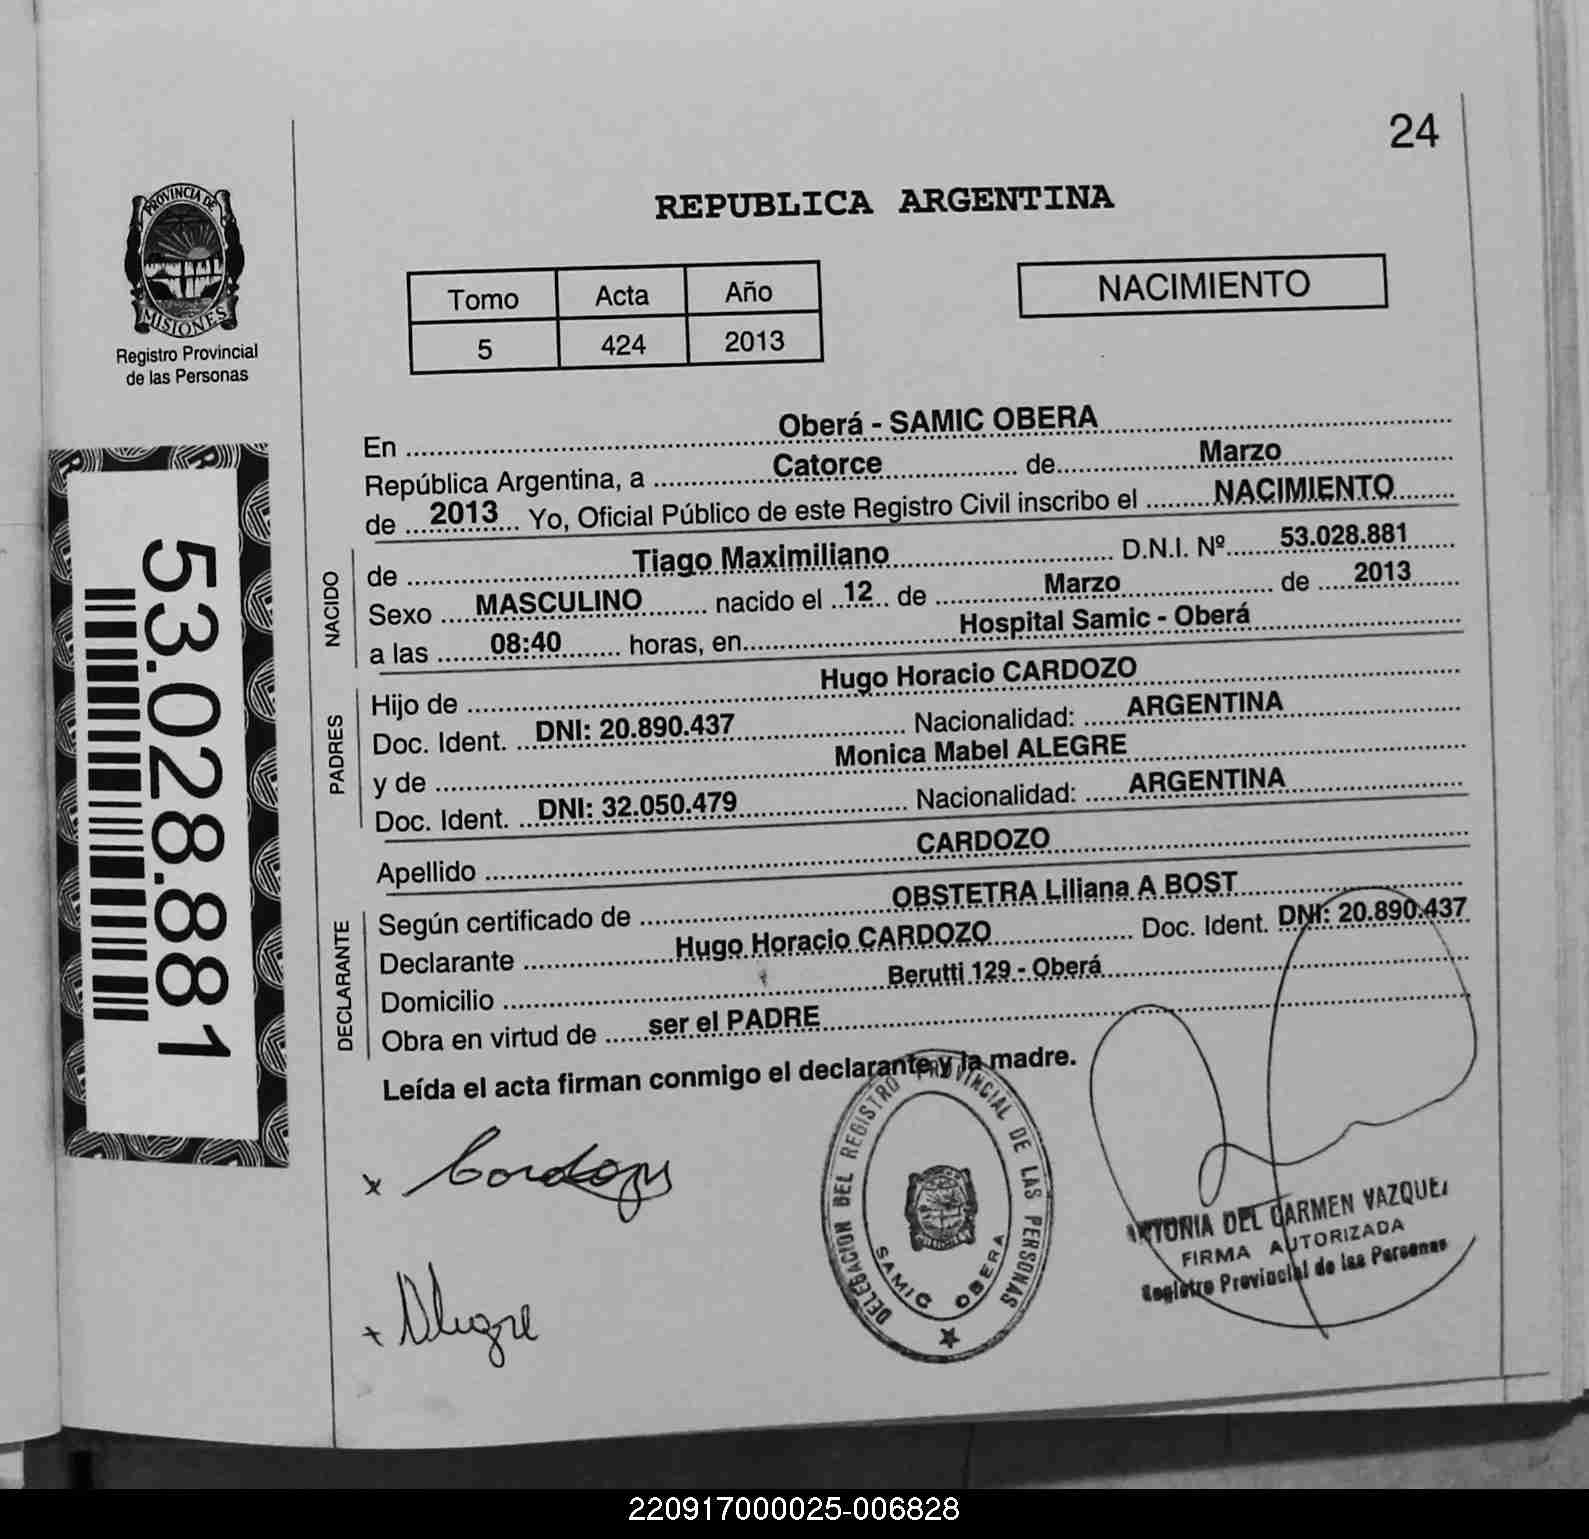 24
PROVINCIA DE
MISIONES
Registro Provincial
de las Personas
REPUBLICA ARGENTINA
Tomo Acta Año
5 424 2013
NACIMIENTO
53.028.881
En ........ Oberá - SAMIC OBERA
República Argentina, a ........ Catorce ........ de ........ Marzo
de ... 2013 ... Yo, Oficial Público de este Registro Civil inscribo el ........ NACIMIENTO
NACIDO
de ........ Tiago Maximiliano ........ D.N.I. Nº ........ 53.028.881
Sexo .... MASCULINO ........ nacido el .. 12 .. de ........ Marzo ........ de .... 2013
a las ...... 08:40 ........ horas, en ........ Hospital Samic - Oberá
PADRES
Hijo de ........ Hugo Horacio CARDOZO
Doc. Ident. .. DNI: 20.890.437 ........ Nacionalidad: ..... ARGENTINA
y de ........ Monica Mabel ALEGRE
Doc. Ident. .. DNI: 32.050.479 ........ Nacionalidad: ..... ARGENTINA
Apellido ........ CARDOZO
DECLARANTE
Según certificado de ........ OBSTETRA Liliana A BOST
Declarante ........ Hugo Horacio CARDOZO ........ Doc. Ident. DNI: 20.890.437
Domicilio ........ Berutti 129 - Oberá
Obra en virtud de ..... ser el PADRE
Leída el acta firman conmigo el declarante y la madre.
x Cardozo
x Alegre
DELEGACION DEL REGISTRO PROVINCIAL DE LAS PERSONAS
SAMIC OBERA
DEL CARMEN VAZQUEZ
FIRMA AUTORIZADA
Registro Provincial de las Personas
220917000025-006828